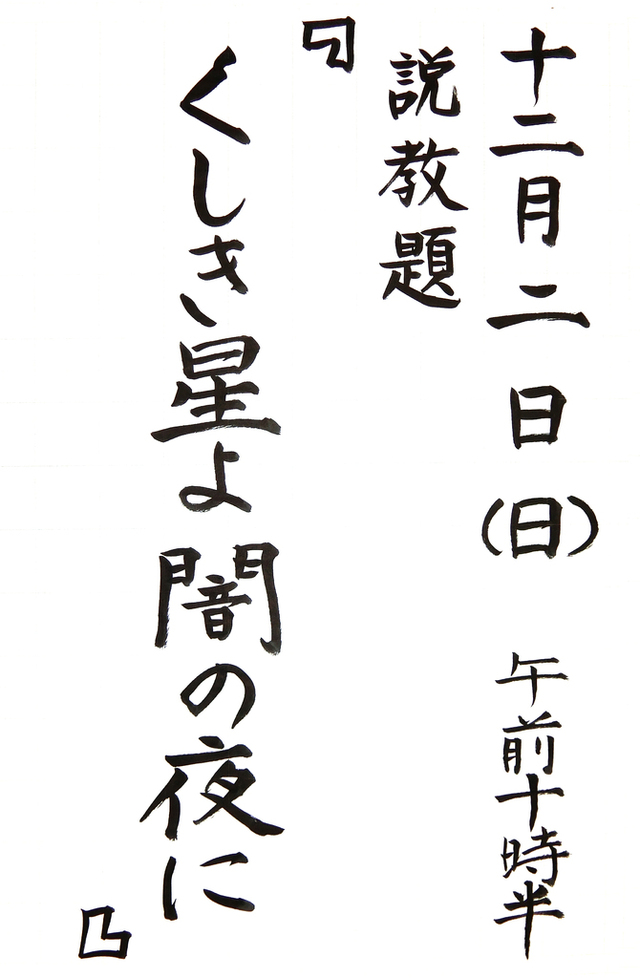 十二月二日(日) 午前十時半
説教題
『くしき星よ 闇の夜に』